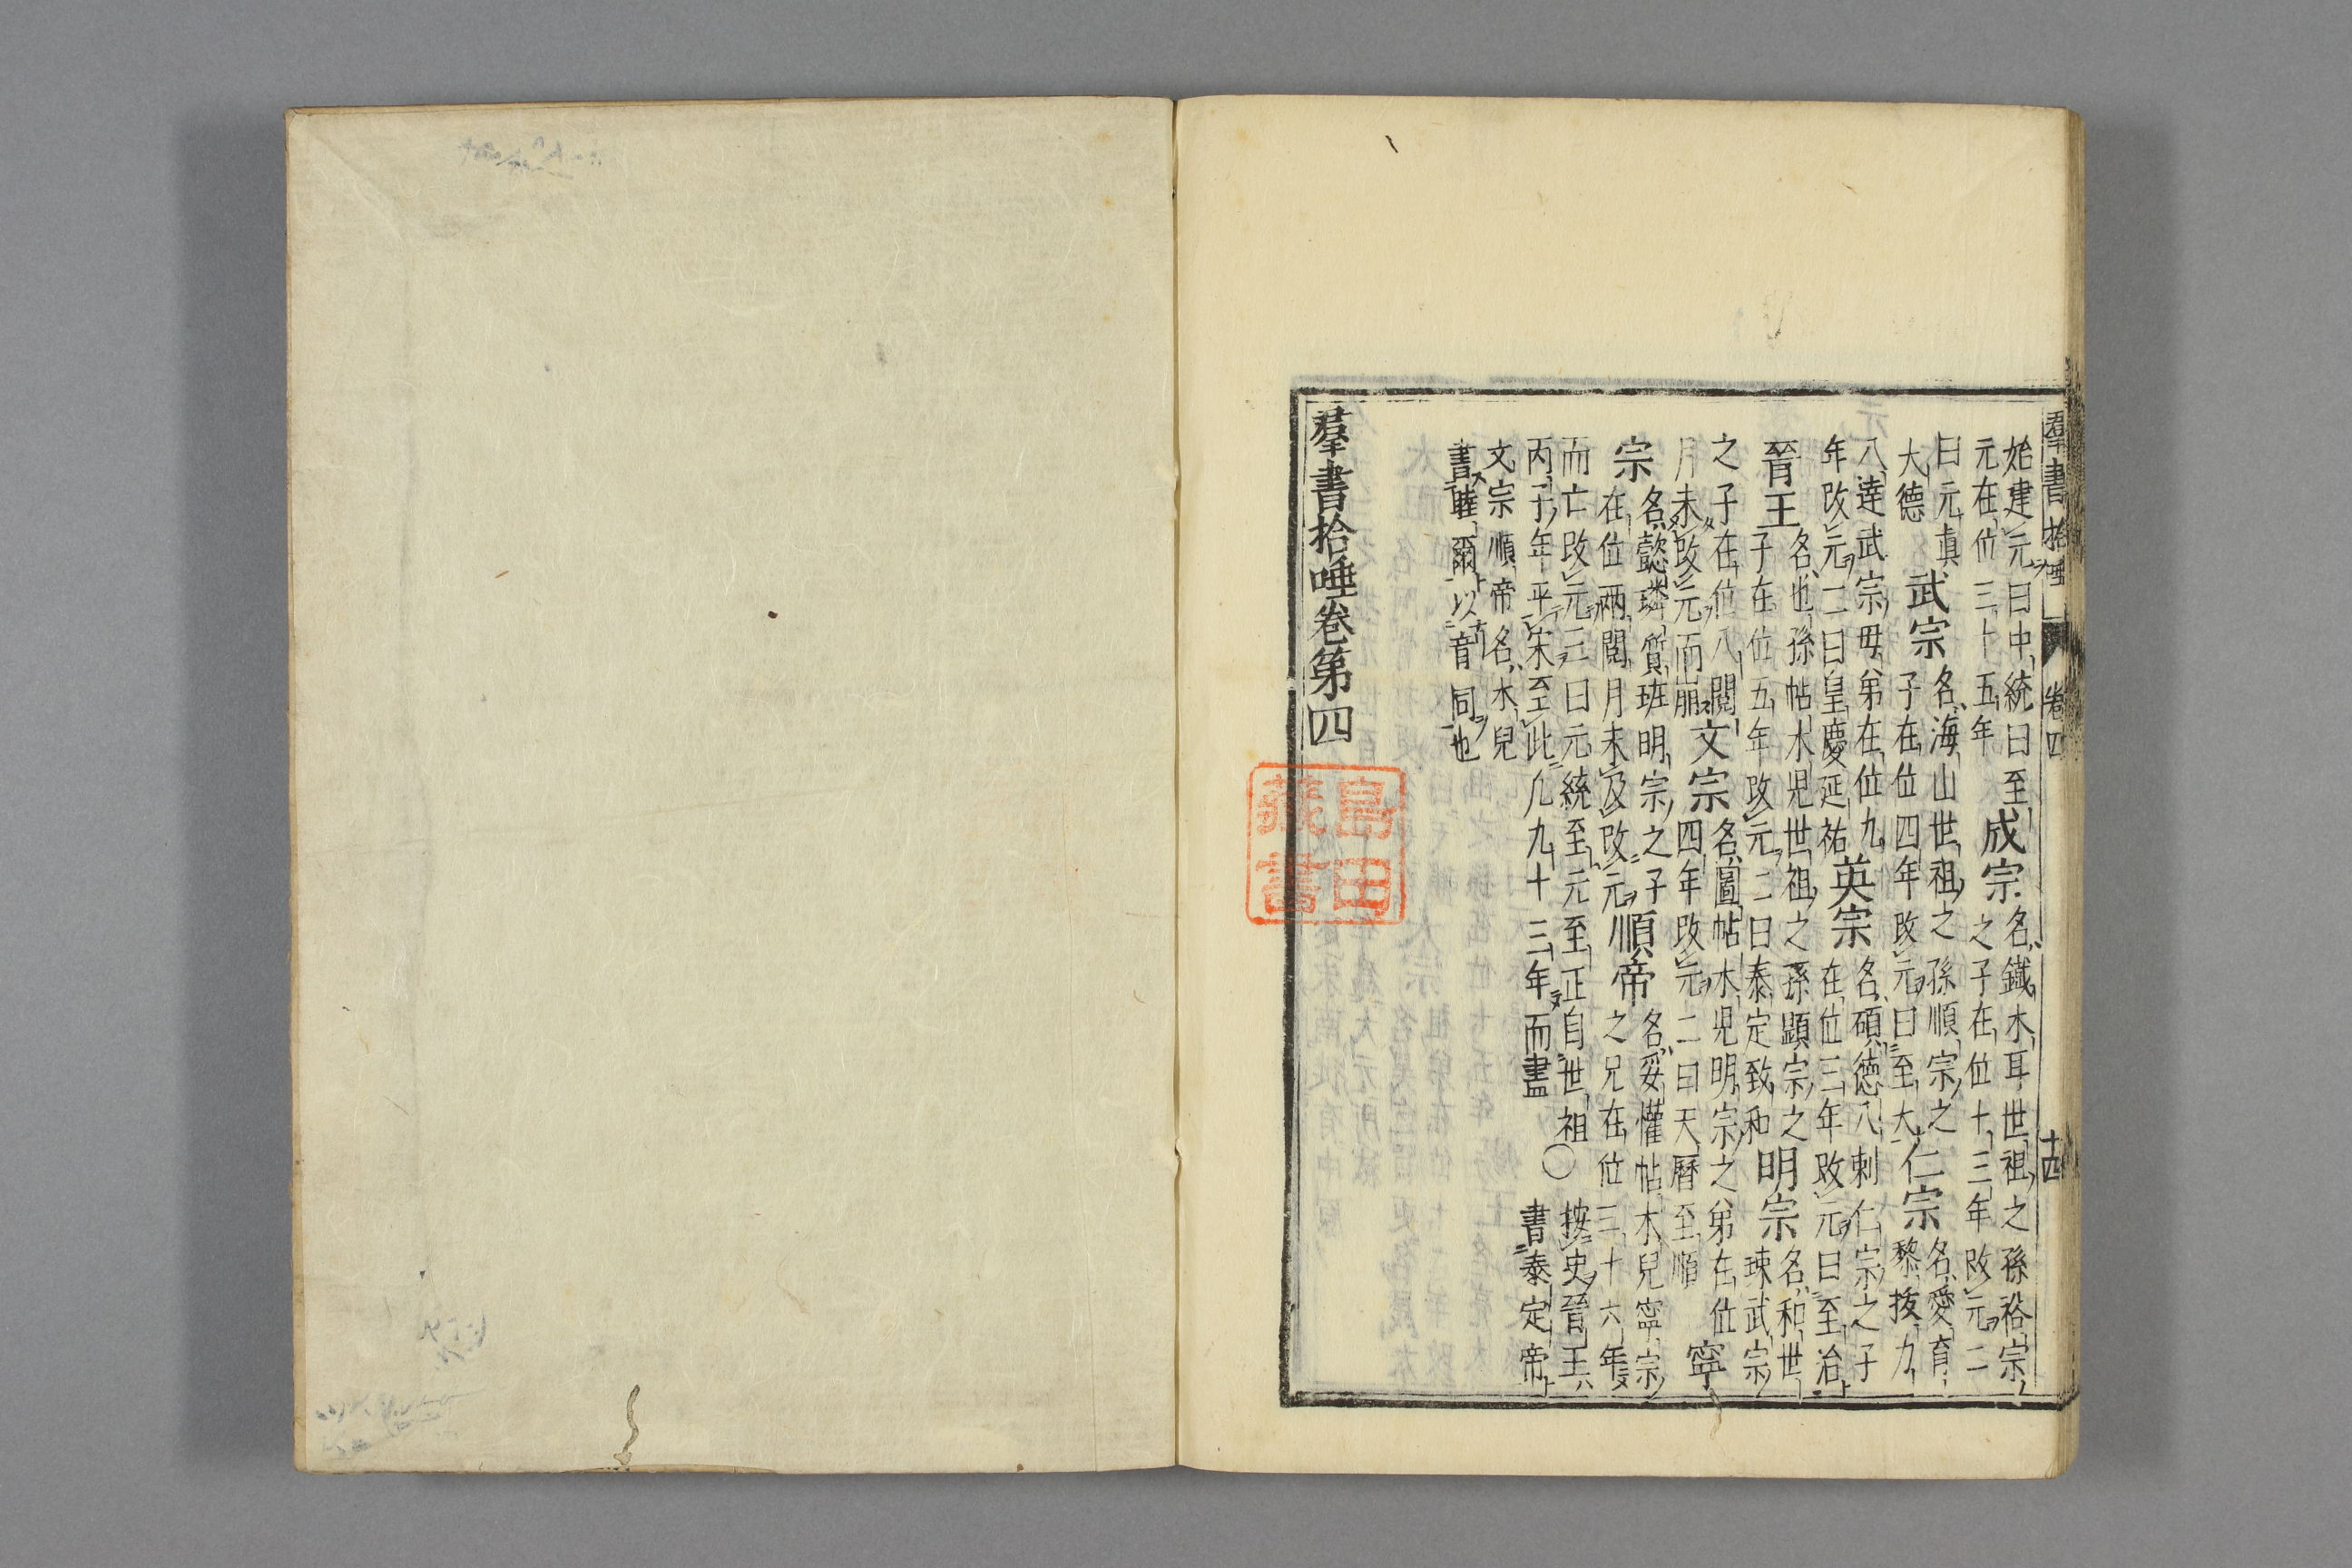 羣書拾唾 卷四 十四
始建元曰中統曰至
元在位三十五年
成宗
名鐵木耳世祖之孫裕宗
之子在位十三年改元二
曰元貞
大德
武宗
名海山世祖之孫順宗之
子在位四年改元曰至大
仁宗
名愛育
黎拔力
八達武宗母弟在位九
年改元二曰皇慶延祐
英宗
名碩德八剌仁宗之子
在位三年改元曰至治
晉王
名也孫帖木児世祖之孫顯宗之
子在位五年改元二曰泰定致和
明宗
名和世
㻋武宗
之子在位八閱
月未改元而崩
文宗
名圖帖木児明宗之弟在位
四年改元二曰天曆至順
寧
宗
名懿璘質班明宗之子
在位兩閱月未及改元
順帝
名妥懽帖木兒寧宗
之兄在位三十六年
而亡改元三曰元統至元至正自世祖
丙子年平宋至此凡九十三年而盡
○
按史晉王
書泰定帝
文宗順帝名木兒
書睦爾以音同也
羣書拾唾卷第四
島田
藏書